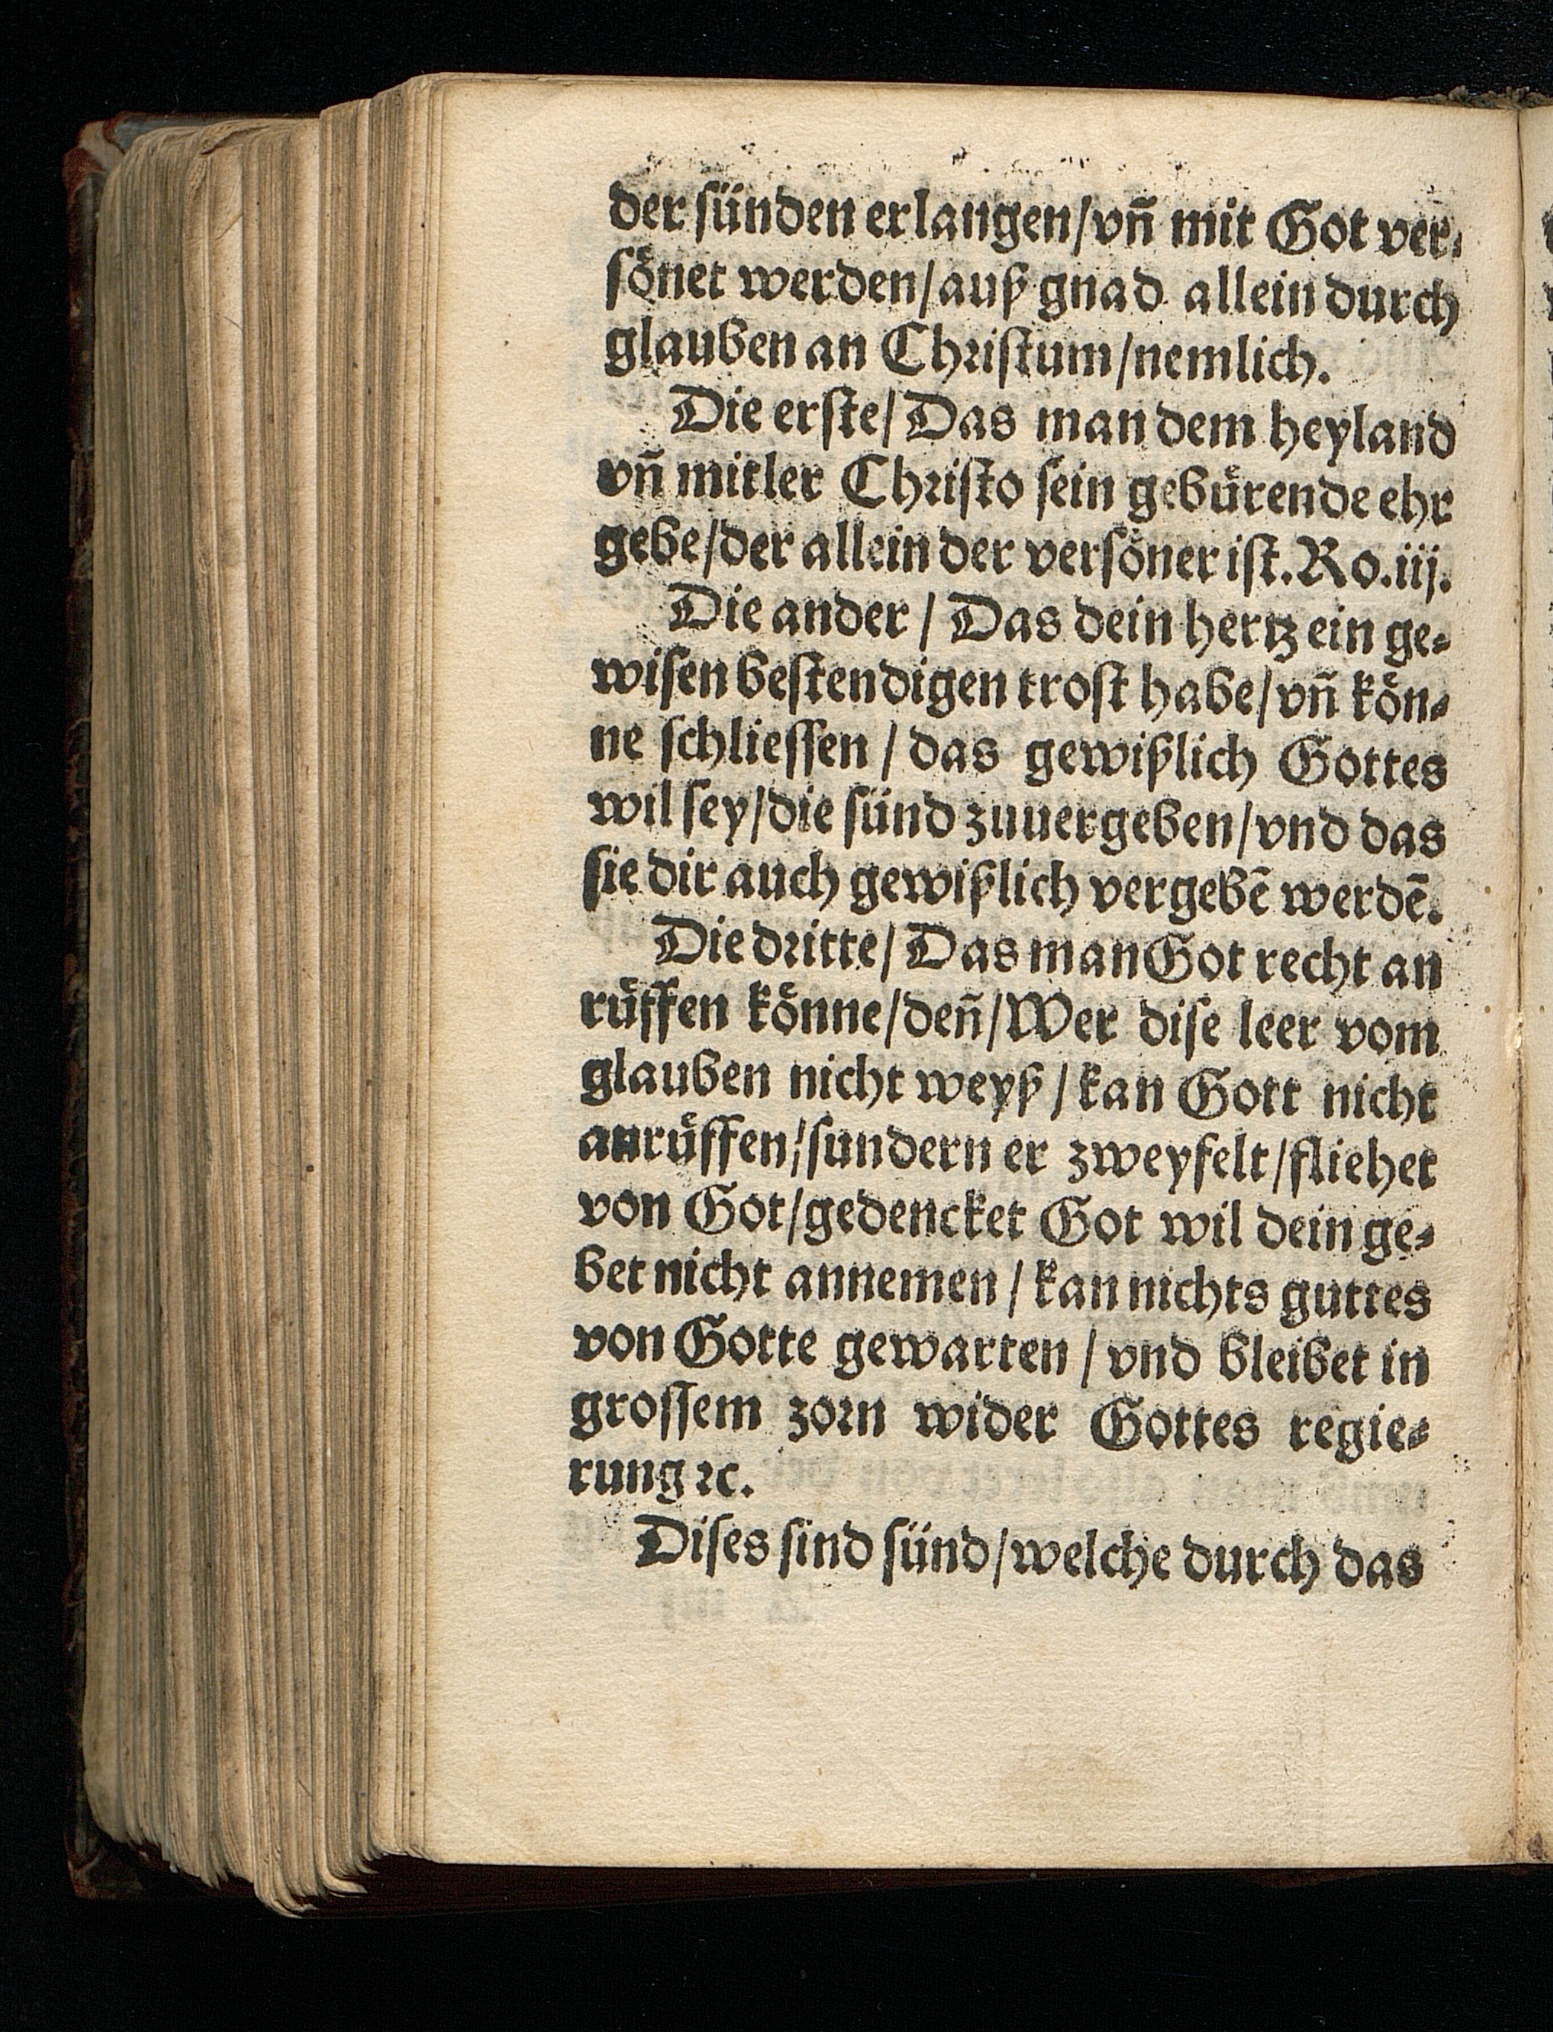 der sünden erlangen/vn̄ mit Got ver-
sönet werden/auß gnad allein durch
glauben an Christum/nemlich.
Die erste/Das man dem heyland
vn̄ mitler Christo sein gebürende ehr
gebe/der allein der versöner ist. Ro.iij.
Die ander/Das dein hertz ein ge-
wisen bestendigen trost habe/vn̄ kön-
ne schliessen/das gewißlich Gottes
wil sey/die sünd zuuergeben/vnd das
sie dir auch gewißlich vergebē werdē.
Die dritte/Das man Got recht an
rüffen könne/den̄/Wer dise leer vom
glauben nicht weyß/kan Gott nicht
anrüffen/sundern er zweyfelt/fliehet
von Got/gedencket Got wil dein ge-
bet nicht annemen/kan nichts guttes
von Gotte gewarten/vnd bleibet in
grossem zorn wider Gottes regie-
rung ꝛc.
Dises sind sünd/welche durch das